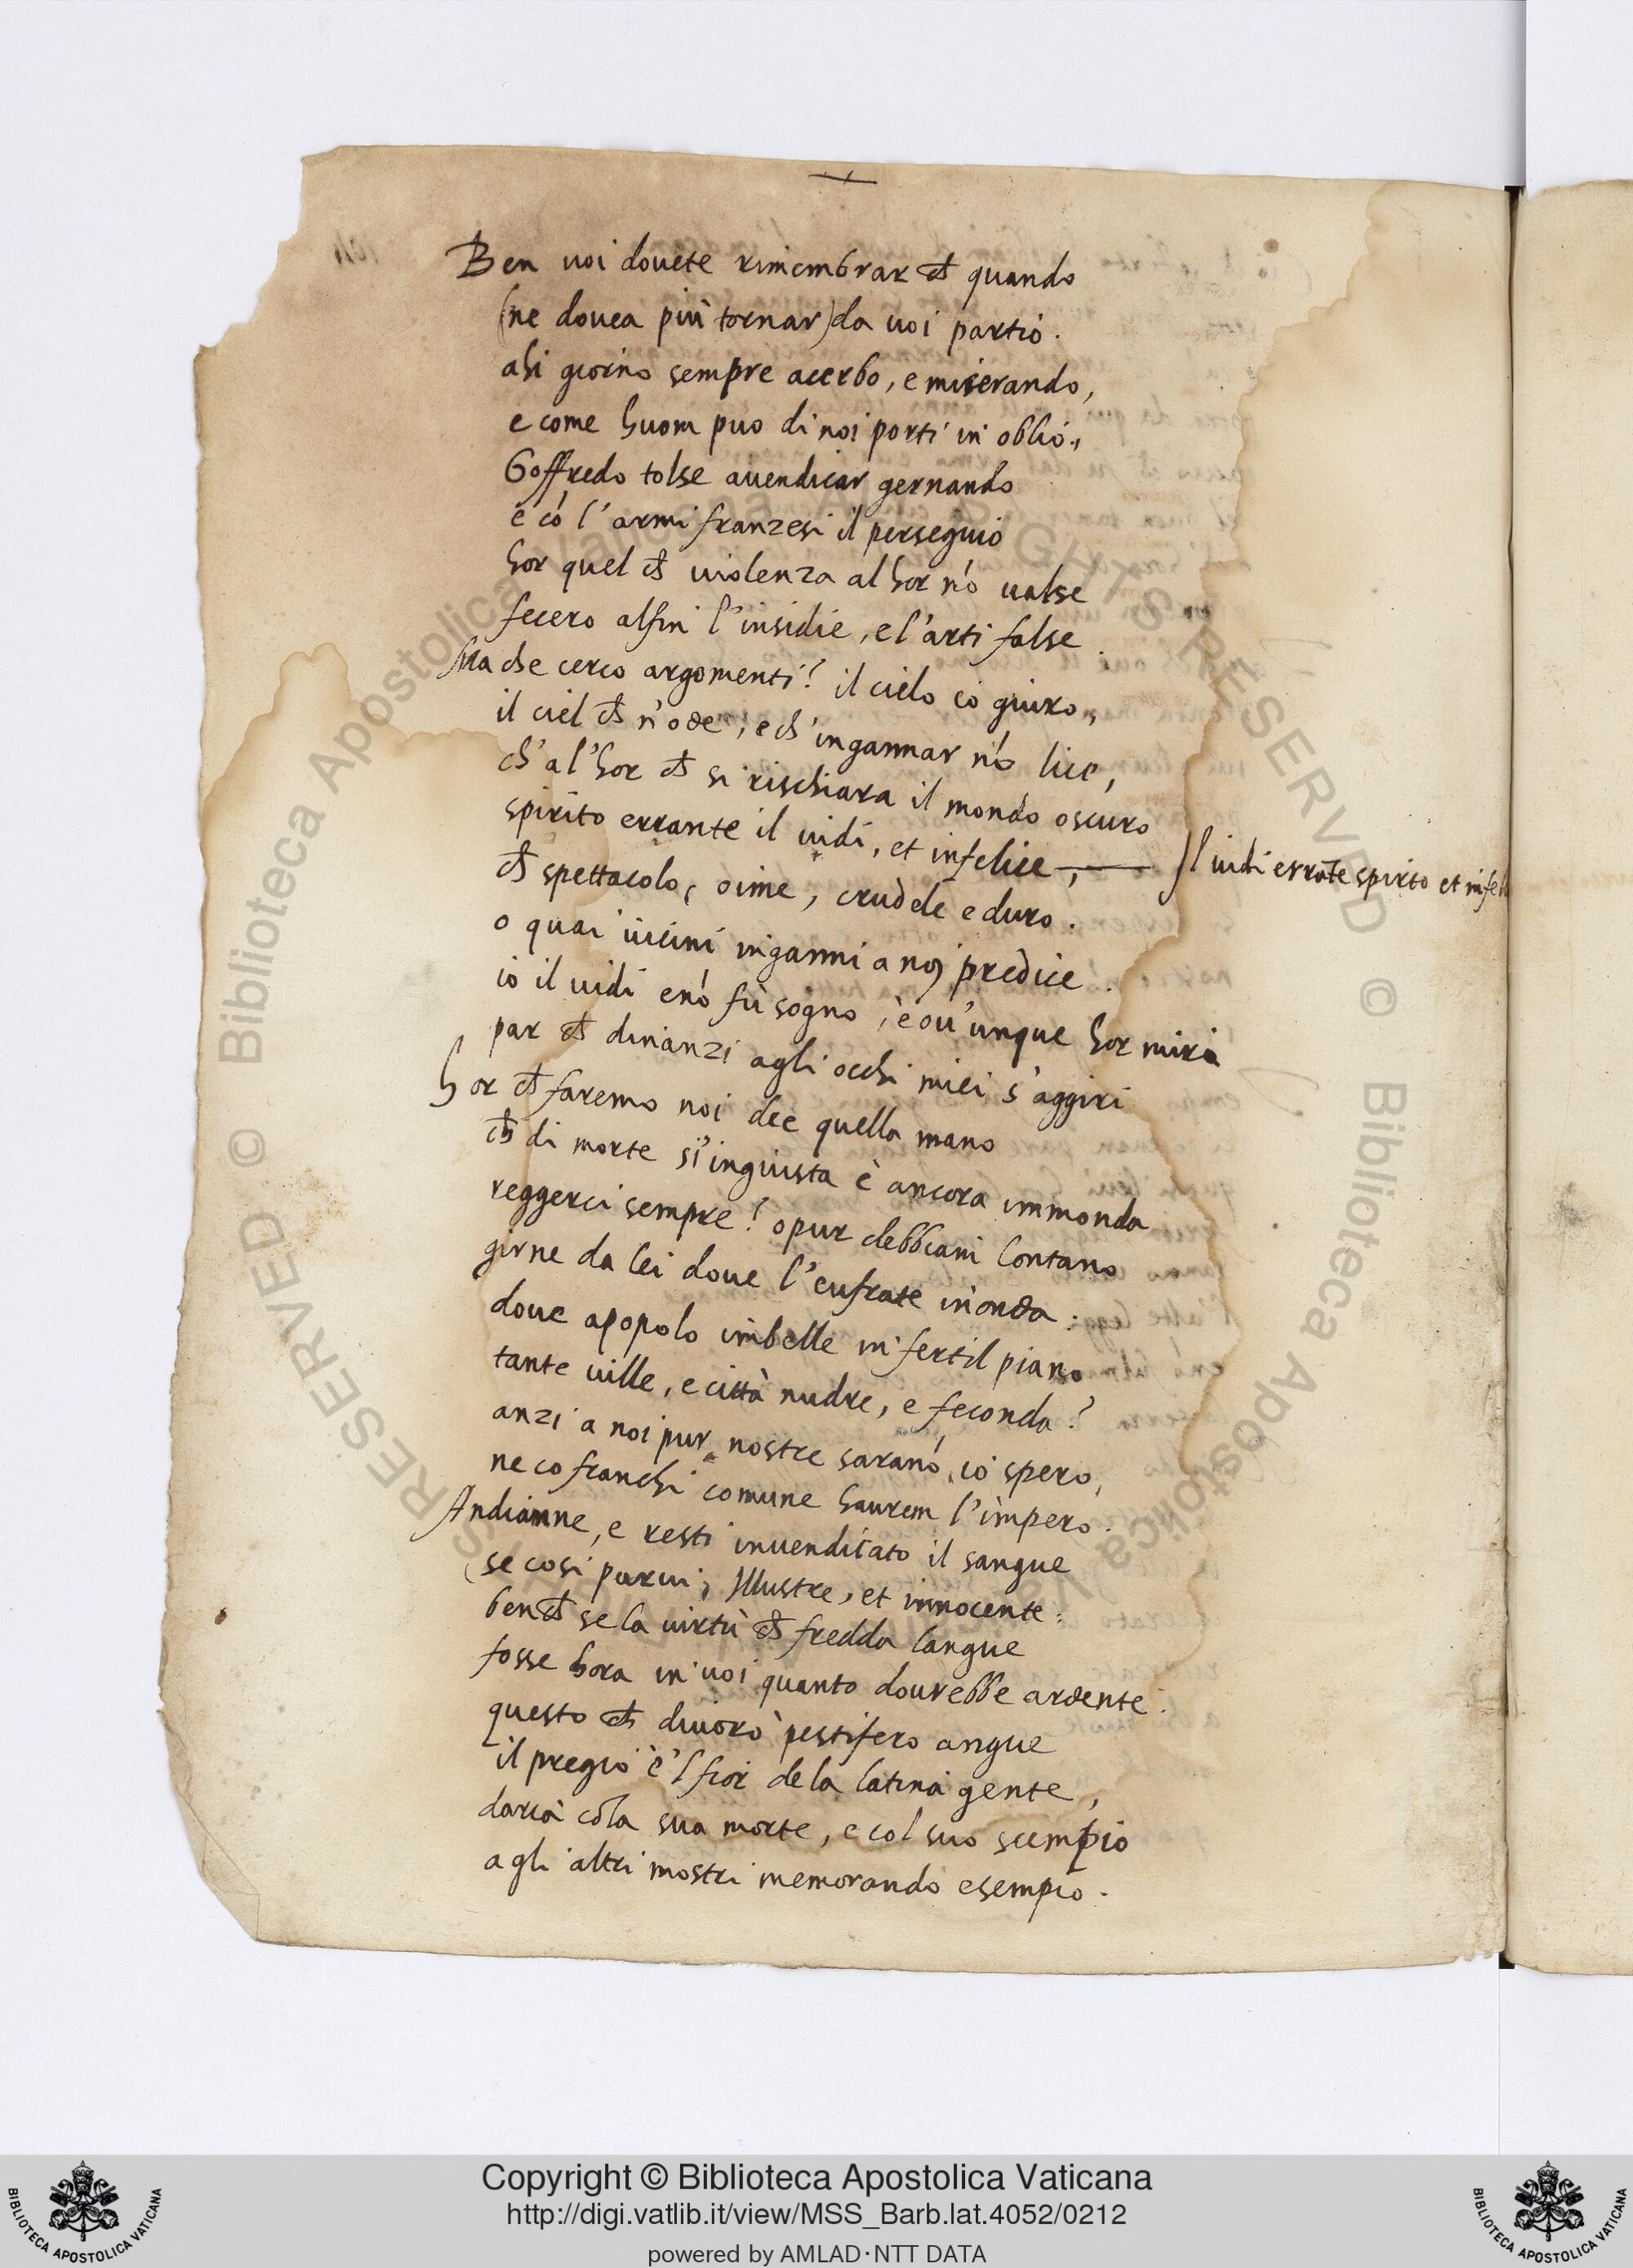 Ben uoi douete rimembrar ch̄ quando
(ne douea più tornar) da uoi partio.
ahi giorno sempre acerbo, e miserando,
e come huom puo di noi porti in oblio.,
Goffredo tolse auendicar gernando
e cō l'armi franzesi il perseguio
hor quel ch̄ uiolenza alhor nō ualse
fecero alfin l'insidie, e l'arti false.
Ma che cerco argomenti? il cielo io giuro,
il ciel ch̄ n'ode, e ch'ingannar nō lice,
ch'al'hor ch̄ si rischiara il mondo oscuro
spirito errante il uidi, et infelice, Il uidi errāte spirto et infel
ch̄ spettacolo, oime, crudele e duro.
o quai uicini inganni a noi predice.
io il uidi enō fù sogno, e ou'unque hor miri
par ch̄ dinanzi agli occhi miei s'aggiri
Hor ch̄ faremo noi dee quella mano
ch̄ di morte si'ingiusta è ancora immonda
reggerci sempre? opur debbiam lontano
girne da lei doue l'eufrate inonda:
doue apopolo imbelle in fertil piano
tante uille, e città nudre, e feconda?
anzi a noi pur nostre saranō, io spero,
ne co franchi comune haurem l'impero.
Andianne, e resti inuendicato il sangue
(se cosi parui, Illustre, et innocente:
bench̄ se la uirtù ch̄ fredda langue
fosse hora in uoi quanto dourebbe ardente.
questo ch̄ diuorò pestifero angue
il pregio e'l fior de la latina gente,
daria cōla sua morte, e col suo scempio
agli altri mostri memorando esempio.
RESERVED © Biblioteca Apostolica Vaticana ALL RIGHTS RESERVED © Biblioteca Apostolica Vaticana
Copyright © Biblioteca Apostolica Vaticana
http://digi.vatlib.it/view/MSS_Barb.lat.4052/0212
powered by AMLAD·NTT DATA
BIBLIOTECA APOSTOLICA VATICANA
BIBLIOTECA APOSTOLICA VATICANA